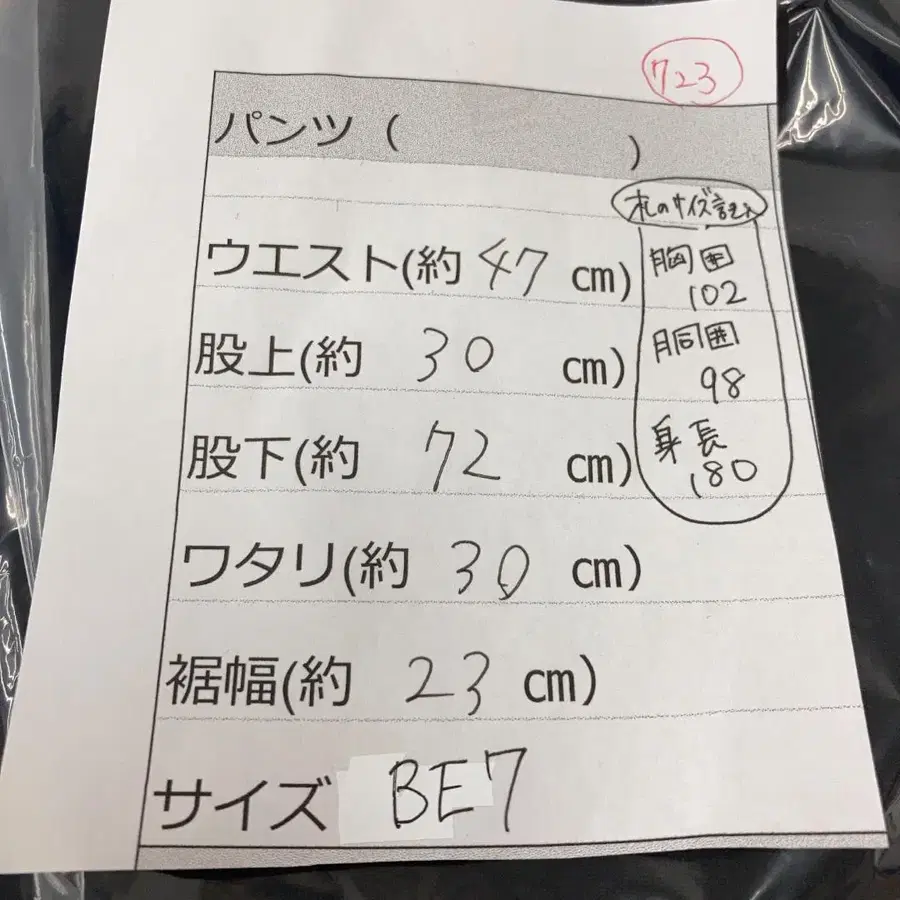 723
パンツ ( )
札のサイズ記入
ウエスト(約 47 cm)
胸囲
102
股上(約 30 cm)
胴囲
98
股下(約 72 cm)
身長
180
ワタリ(約 30 cm)
裾幅(約 23 cm)
サイズ BE7